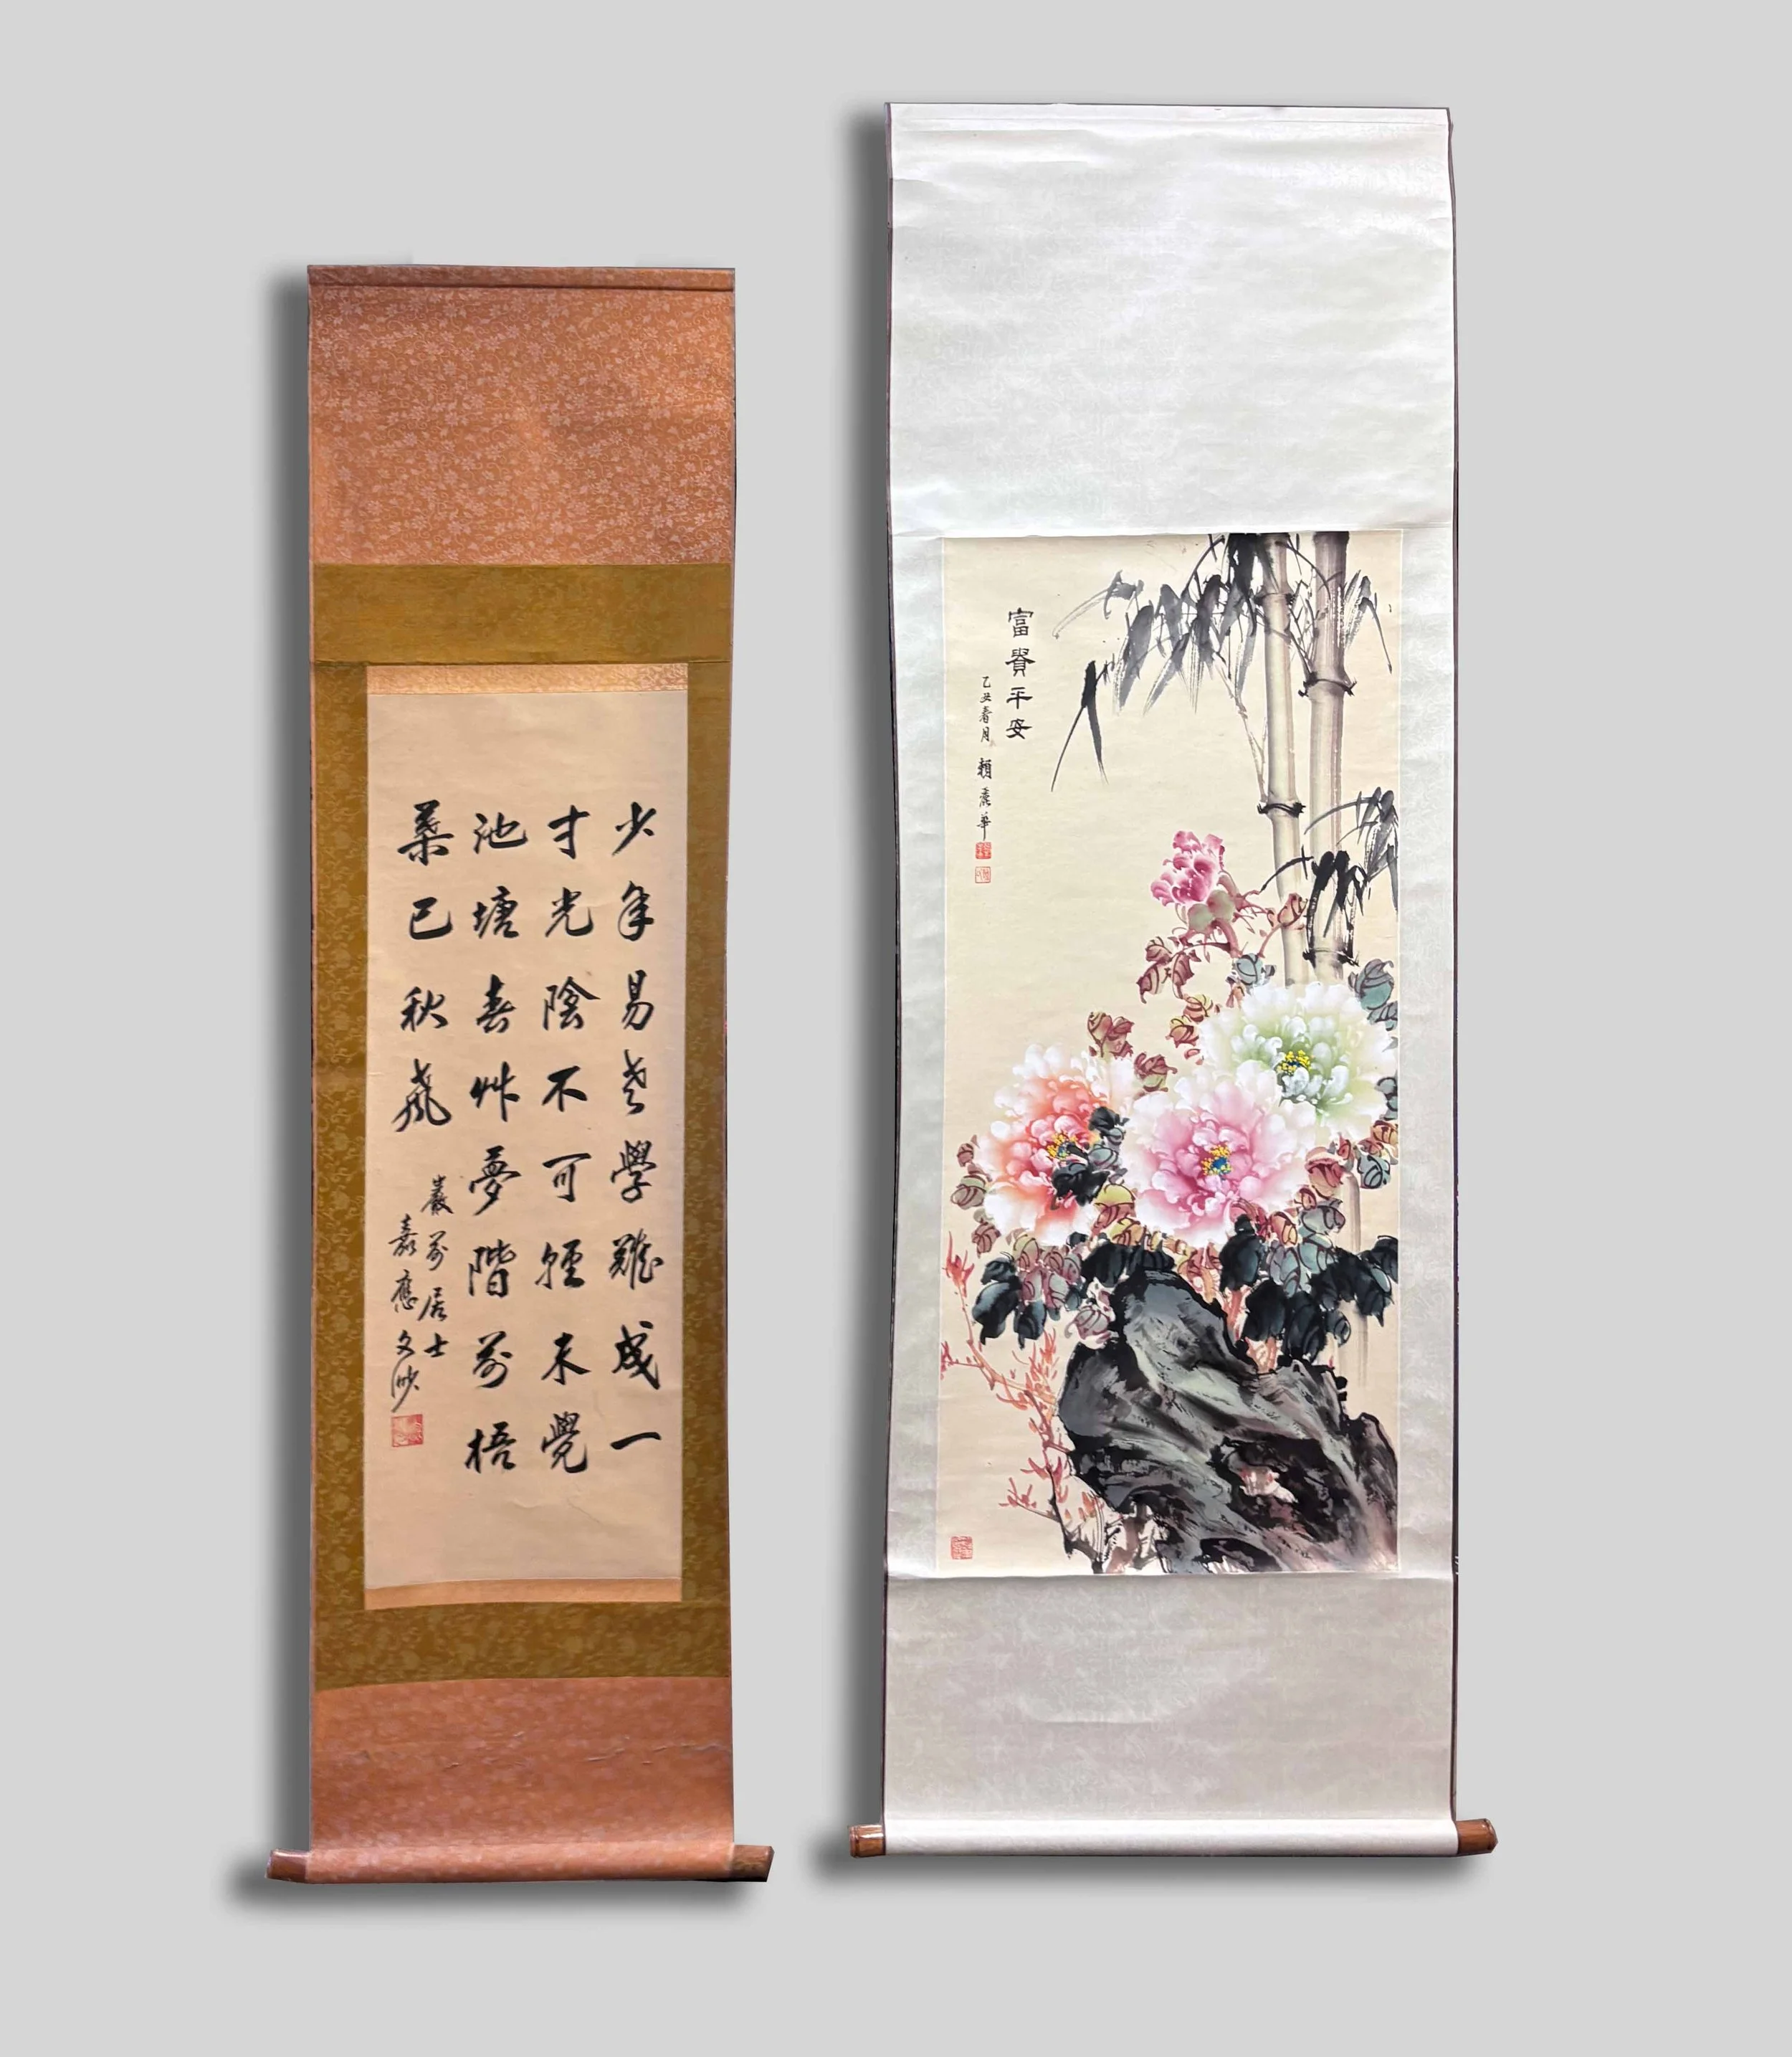 少年易老學難成一
寸光陰不可輕未覺
池塘春艸夢階前梧
葉已秋聲
巖前居士
嘉應文
富貴平安
乙丑春月 賴華